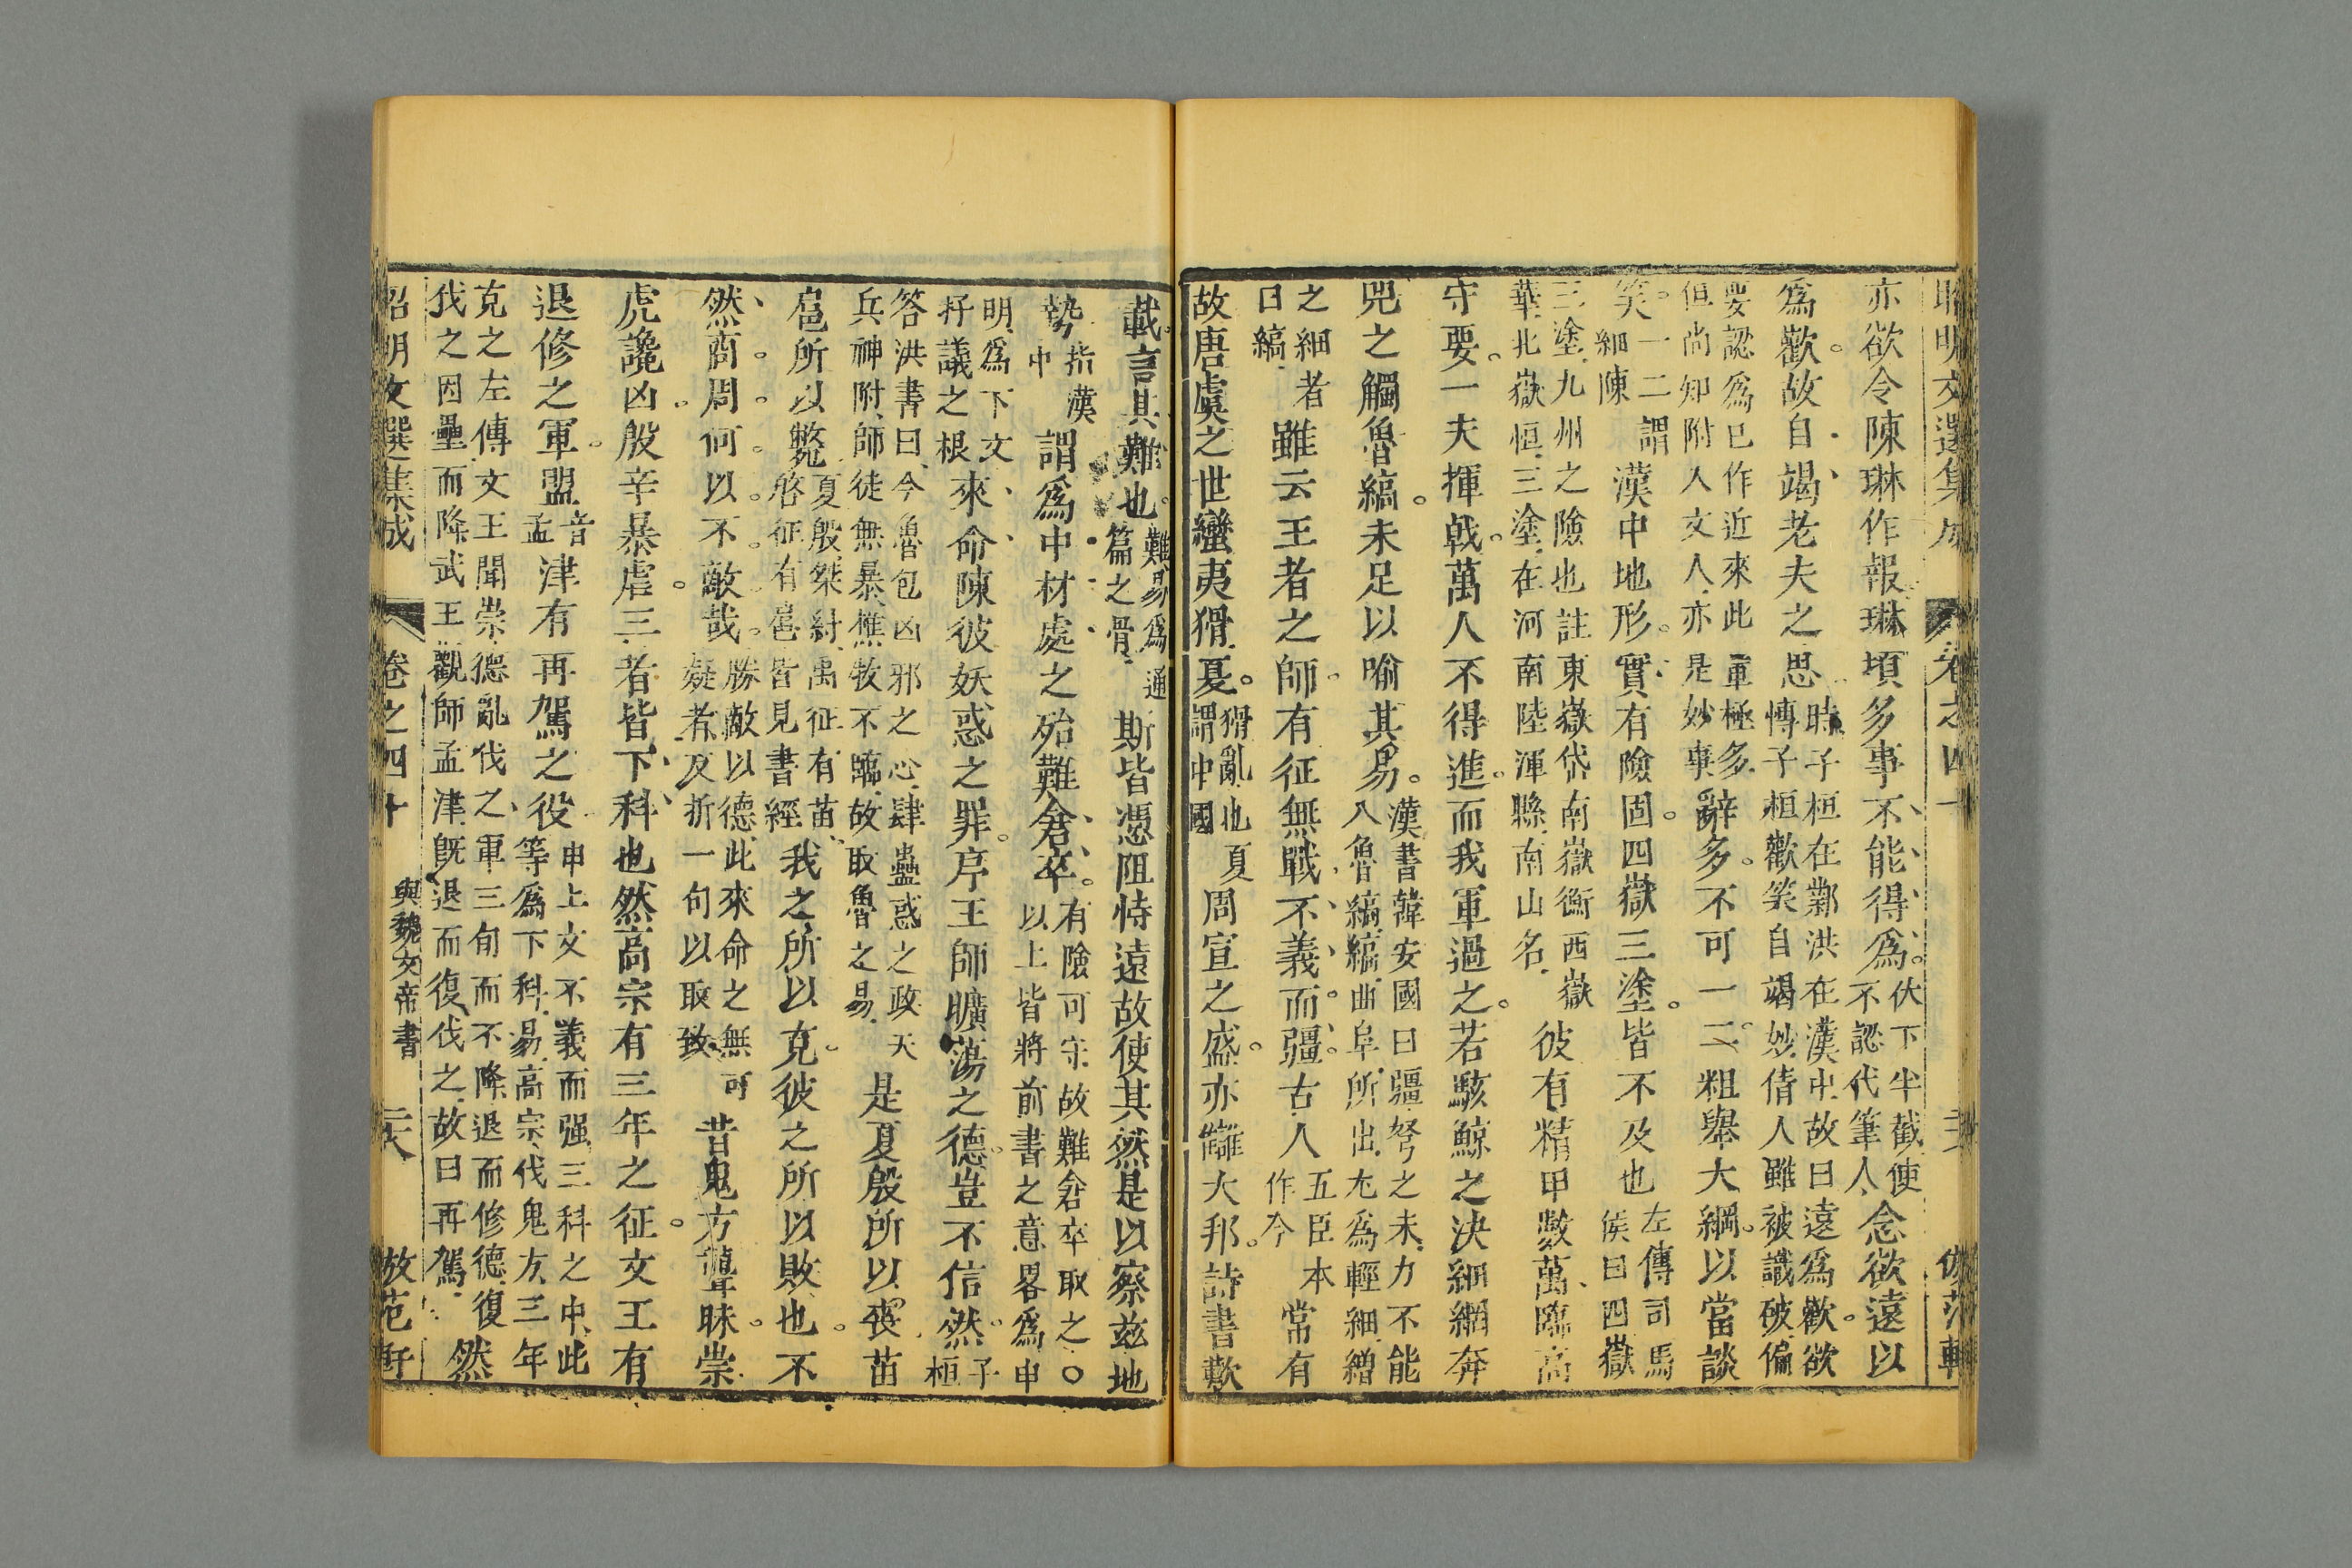 昭明文選集成 卷之四十 倣范軒
亦欲令陳琳作報琳頃多事不能得爲伏下半截使不認代筆人念欲遠以
爲歡故自竭老夫之思時子桓在鄴洪在漢中故曰遠爲歡欲慱子桓歡笑自竭妙倩人雖被識破偏
要認爲已作近來此軍極多但尚知附人文人亦是妙事辭多不可一二粗舉大綱以當談
笑一二謂細陳漢中地形實有險固四嶽三塗皆不及也左傳司馬侯曰四嶽
三塗九州之險也註東嶽岱南嶽衡西嶽華北嶽恒三塗在河南陸渾縣南山名彼有精甲數萬臨高
守要一夫揮戟萬人不得進而我軍過之若駭鯨之決細網奔
兕之觸魯縞未足以喻其易漢書韓安國曰彊弩之末力不能入魯縞縞曲阜所出尤爲輕細繒
之細者曰縞雖云王者之師有征無戰不義而彊古人五臣本作今常有
故唐虞之世蠻夷猾夏猾亂也夏謂中國周宣之盛亦讎大邦詩書歎
載言其難也難易爲通篇之骨斯皆憑阻恃遠故使其然是以察兹地
勢指漢中謂爲中材處之殆難倉卒有險可守故難倉卒取之〇以上皆將前書之意畧爲申
明爲下文抒議之根來命陳彼妖惑之罪序王師曠蕩之德豈不信然子桓
答洪書曰今魯包凶邪之心肆蠱惑之政天兵神附師徒無暴樵牧不臨故取魯之易是夏殷所以喪苗
扈所以斃夏殷桀紂禹征有苗啓征有扈皆見書經我之所以克彼之所以敗也不
然商周何以不敵哉勝敵以德此來命之無可疑者及折一句以取致昔鬼方聾昧崇
虎讒凶殷辛暴虐三者皆下科也然高宗有三年之征文王有
退修之軍盟音孟津有再駕之役申上文不義而强三科之中此等爲下科易高宗伐鬼方三年
克之左傳文王聞崇德亂伐之軍三旬而不降退而修德復伐之因壘而降武王觀師孟津既退而復伐之故曰再駕然
昭明文選集成 卷之四十 與魏文帝書 放范軒